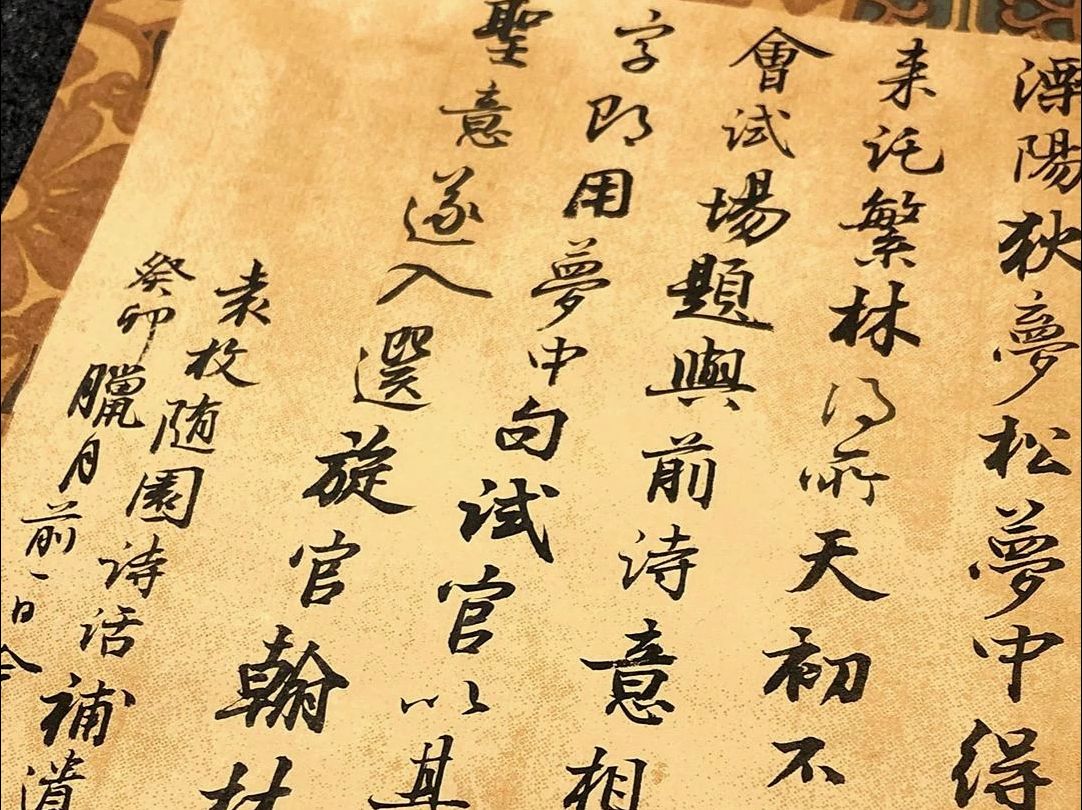 溧陽狄夢松夢中得
来託繁林得所天初不
會試場題與前诗意相
字即用夢中句试官以其
聖意遂入選旋官翰林
袁枚随園诗话補遺
癸卯臘月前一日